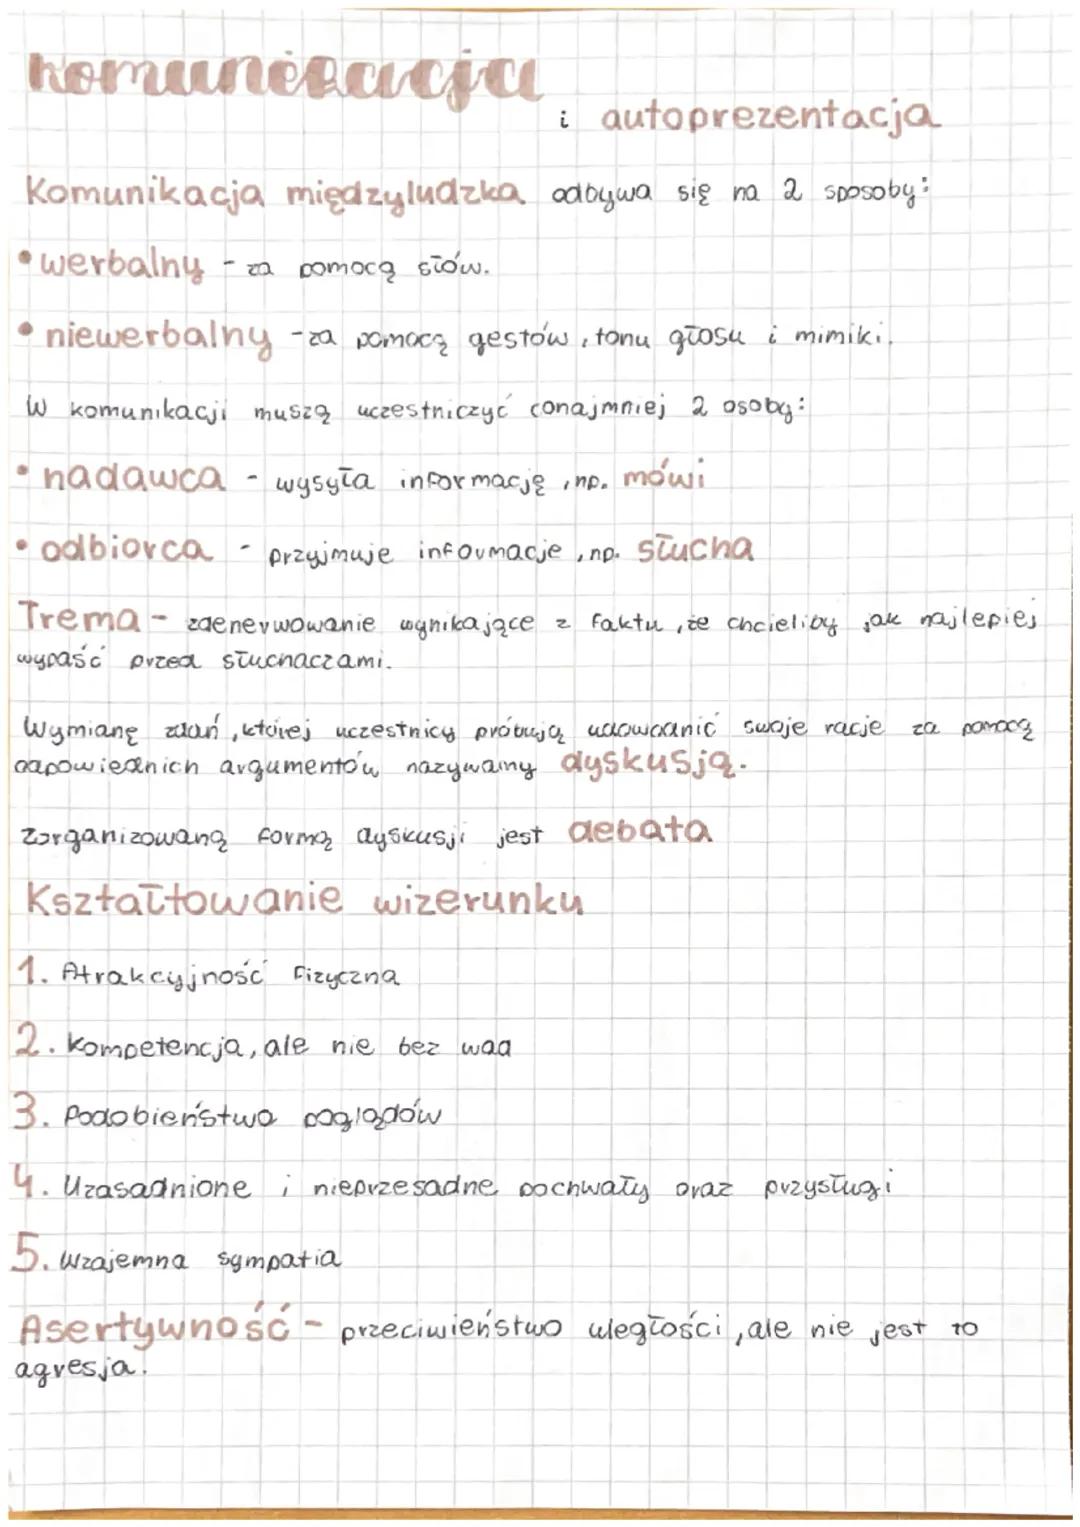 komunikacja
i autoprezentacja
Komunikacja międzyludzka odbywa się na 2 sposoby:
• werbalny - za pomocą słów.
• niewerbalny - za pomocą gestów, tonu głosu i mimiki.
W komunikacji muszą uczestniczyć conajmniej 2 osoby:
• nadawca - wysyła informację, np. mówi
• odbiorca - przyjmuje informacje, np. słucha
Trema - zdenerwowanie wynikające z faktu, że chcieliby jak najlepiej
wypaść przed słuchaczami.
Wymianę zdań, której uczestnicy próbują udowodnić swoje racje za pomocą
odpowiednich argumentów nazywamy dyskusją.
Zorganizowaną formą dyskusji jest debata
Kształtowanie wizerunku
1. Atrakcyjność fizyczna
2. Kompetencja, ale nie bez wad
3. Podobieństwo poglądów
4. Uzasadnione i nieprzesadne pochwały oraz przysługi
5. Wzajemna sympatia
Asertywność - przeciwieństwo uległości, ale nie jest to
agresja.